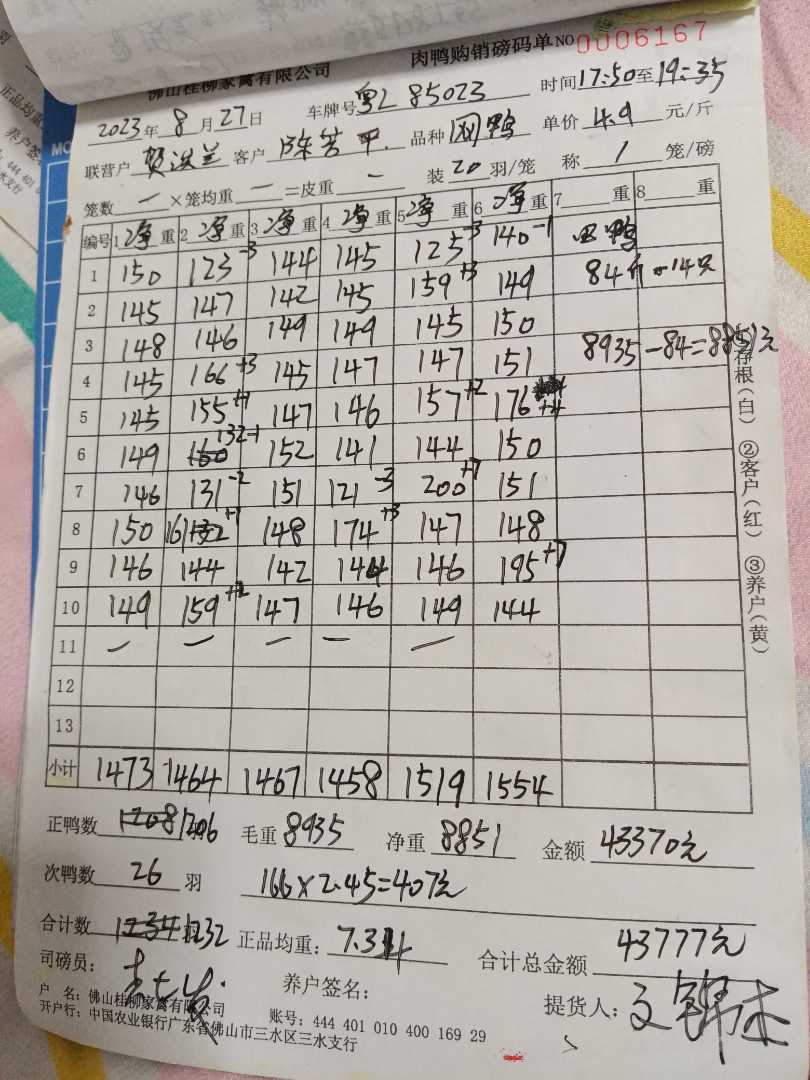 肉鸭购销磅码单 NO 0006167
佛山桂柳家禽有限公司
2023年 8 月 27日 车牌号 粤L 85023 时间 17:50 至 19:35
联营户 客户 陈 品种 网鸭 单价 4.9 元/斤
笼数 一 ×笼均重 一 =皮重 一 装 20 羽/笼 称 1 笼/磅
编号 1 净 重 2 净 重 3 净 重 4 净 重 5 净 重 6 净 重 7 重 8 重
1 150 123-3 144 145 125-3 140-1 鸭
2 145 147 142 145 159+3 149 84斤-14只
3 148 146 149 149 145 150
4 145 166+3 145 147 147 151 8935-84=8851元
5 145 155+1 147 146 157+2 176 +4
6 149 160 132-1 152 141 144 150
7 146 131-2 151 121-3 200+7 151
8 150 161 132+1 148 174+3 147 148
9 146 144 142 144 146 195+7
10 149 159+2 147 146 149 144
11 一 一 一 一 一
12
13
小计 1473 1464 1467 1458 1519 1554
①存根(白) ②客户(红) ③养户(黄)
正鸭数 1208 1206 毛重 8935 净重 8851 金额 43370元
次鸭数 26 羽 166×2.45=407元
合计数 1234 1232 正品均重: 7.34 合计总金额 43777元
司磅员: 养户签名: 提货人:
户 名: 佛山桂柳家禽有限公司 账号: 444 401 010 400 169 29
开户行: 中国农业银行广东省佛山市三水区三水支行
正品均重
养户签
: 444 401
水支行